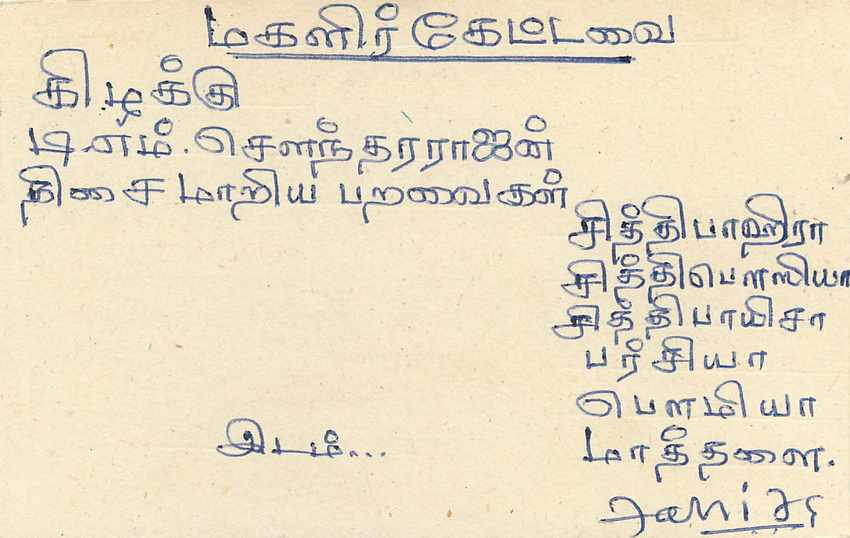 மகளிர் கேட்டவை
கிழக்கு
டி.எம். சௌந்தரராஜன்
திசை மாறிய பறவைகள்
சித்தி பாஹிரா
சித்தி பௌஸியா
சித்தி பாயிசா
பர்சியா
பௌமியா
இடம்...
மாத்தளை.